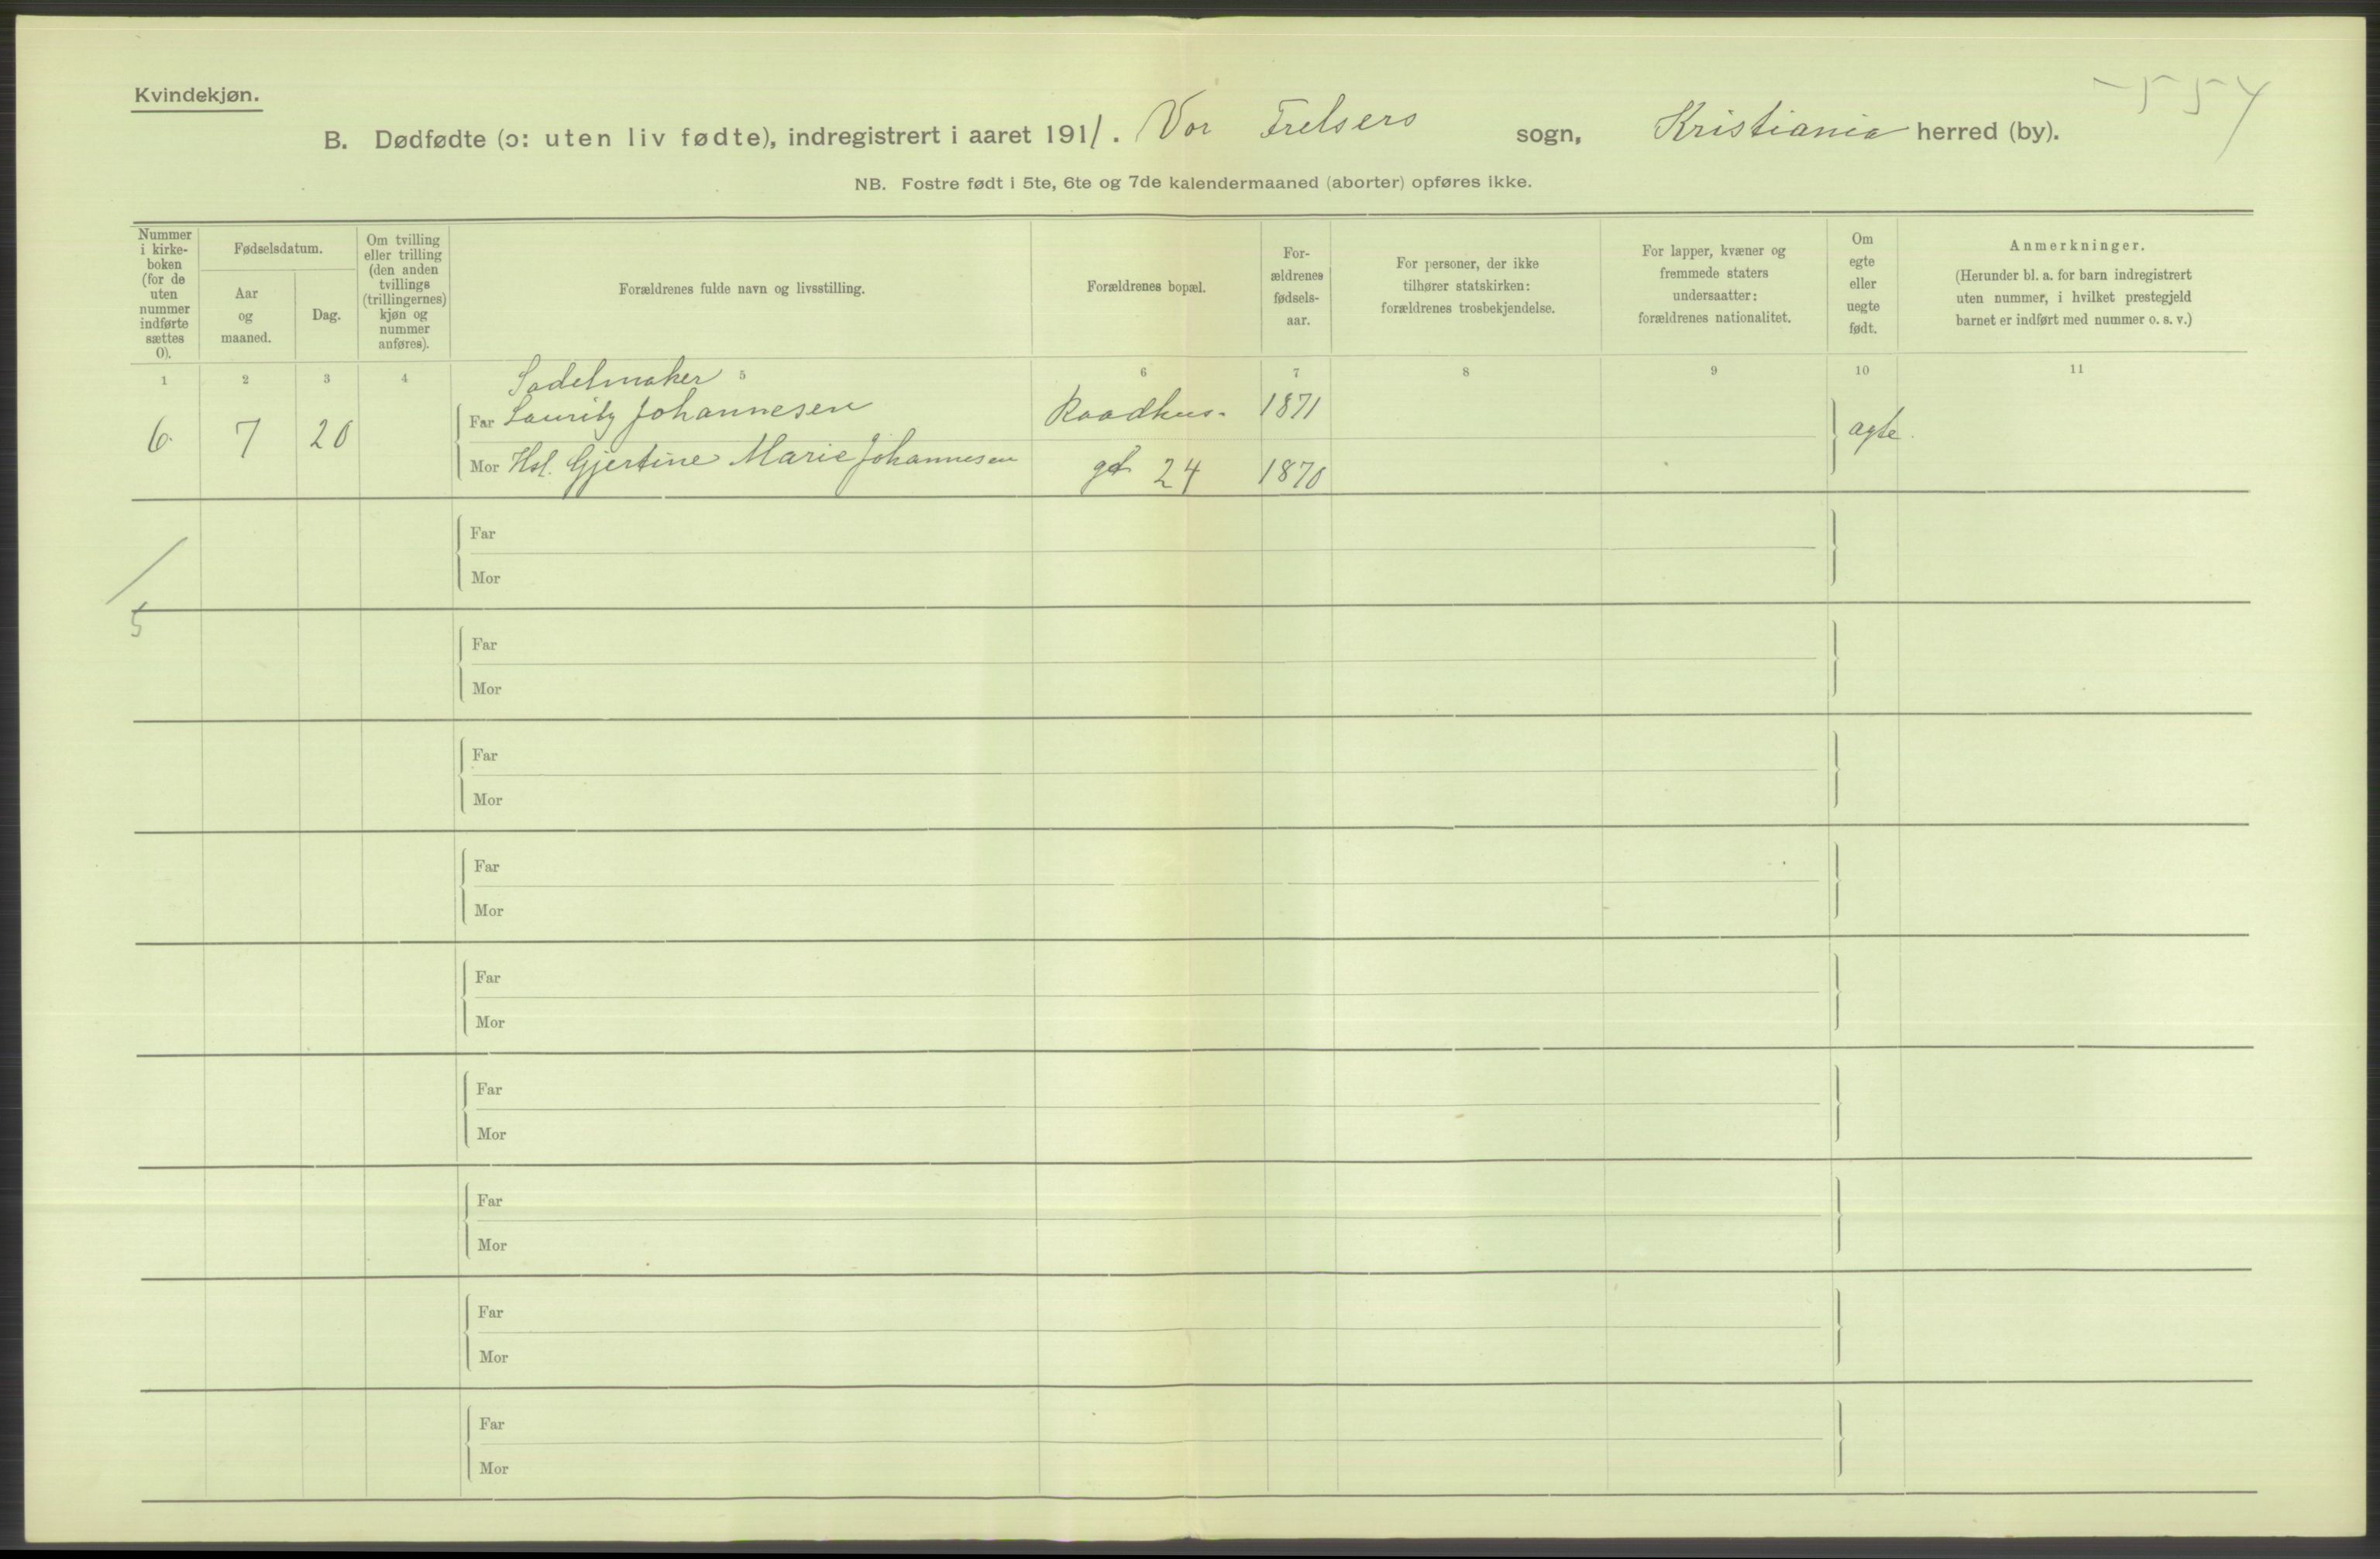 Kvindekjøn.
557
B. Dødfødte (ɔ: uten liv fødte), indregistrert i aaret 1911. Vor Frelsers sogn, Kristiania herred (by).
NB. Fostre født i 5te, 6te og 7de kalendermaaned (aborter) opføres ikke.
Nummer
i kirke-
boken
(for de
uten
nummer
indførte
sættes
0).
Fødselsdatum.
Aar
og
maaned.
Dag.
Om tvilling
eller trilling
(den anden
tvillings
(trillingernes)
kjøn og
nummer
anføres).
Forældrenes fulde navn og livsstilling.
Forældrenes bopæl.
For-
ældrenes
fødsels-
aar.
For personer, der ikke
tilhører statskirken:
forældrenes trosbekjendelse.
For lapper, kvæner og
fremmede staters
undersaatter:
forældrenes nationalitet.
Om
egte
eller
uegte
født.
Anmerkninger.
(Herunder bl. a. for barn indregistrert
uten nummer, i hvilket prestegjeld
barnet er indført med nummer o. s. v.)
1 2 3 4 5 6 7 8 9 10 11
Sadelmaker
6. 7 20 Far Lauritz Johannesen Raadhus- 1871 ægte.
Mor Hsl. Gjertine Marie Johannesen gt 24 1870
Far
Mor
5
Far
Mor
Far
Mor
Far
Mor
Far
Mor
Far
Mor
Far
Mor
Far
Mor
Far
Mor